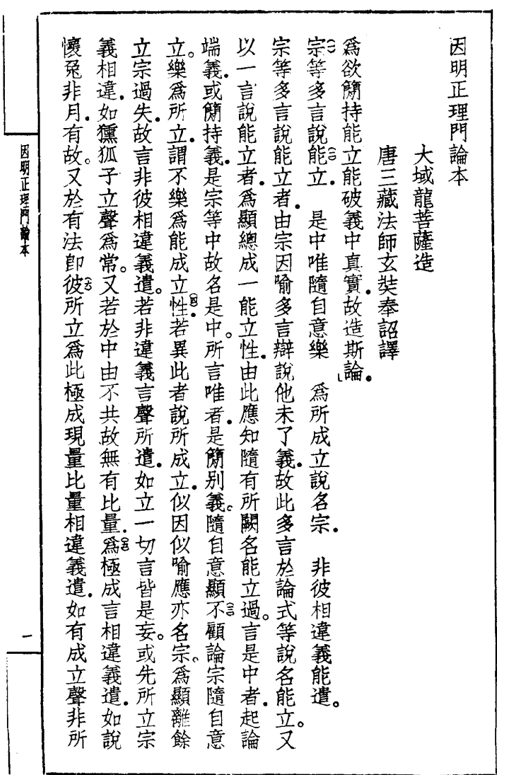 因明正理門論本
大域龍菩薩造
唐三藏法師玄奘奉詔譯
爲欲簡持能立能破義中真實。故造斯論。
宗等多言說能立　是中唯隨自意樂　爲所成立說名宗。　非彼相違義能遣。
宗等多言說能立者。由宗因喻多言辯說他未了義。故此多言於論式等說名能立。又
以一言說能立者。爲顯總成一能立性。由此應知隨有所闕名能立過。言是中者。起論
端義。或簡持義。是宗等中故名是中。所言唯者。是簡別義。隨自意顯不顧論宗隨自意
立。樂爲所立。謂不樂爲能成立性。若異此者說所成立。似因似喻應亦名宗。爲顯離餘
立宗過失。故言非彼相違義遣。若非違義言聲所遣。如立一切言皆是妄。或先所立宗
義相違。如獯狐子立聲爲常。又若於中由不共故無有比量。爲極成言相違義遣。如說
懷兔非月。有故。又於有法卽彼所立爲此極成現量比量相違義遣。如有成立聲非所
因明正理門論本
一